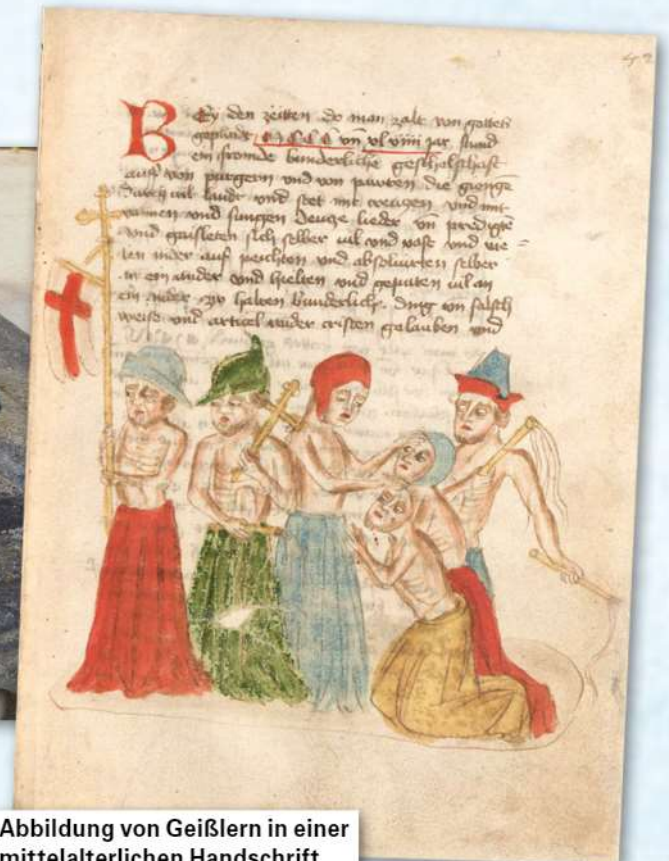 Bey den zeitten do man zalt von gottes
gepurdt cccc un xl viiii jar stund
ein fromde bunderliche geschelschaft
auff von purgern und von pawren die gienge
durch vil landt und stet mit creuzen und mit
vannen und sungen Deuze lieder un predigte
und gaisleten sich selber vil und vast und
ander auf peichten und absolvirten selber
an ein ander und hielten und geputen vil an
ein ander zw halten bunderlich ding un falsch
weise und articel wider cristen gelauben und
Abbildung von Geißlern in einer
mittelalterlichen Handschrift